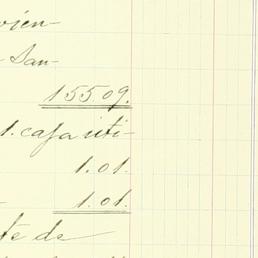 vien-
San-
155.09.
1. caja uti-
1.01.
1.01.
te de